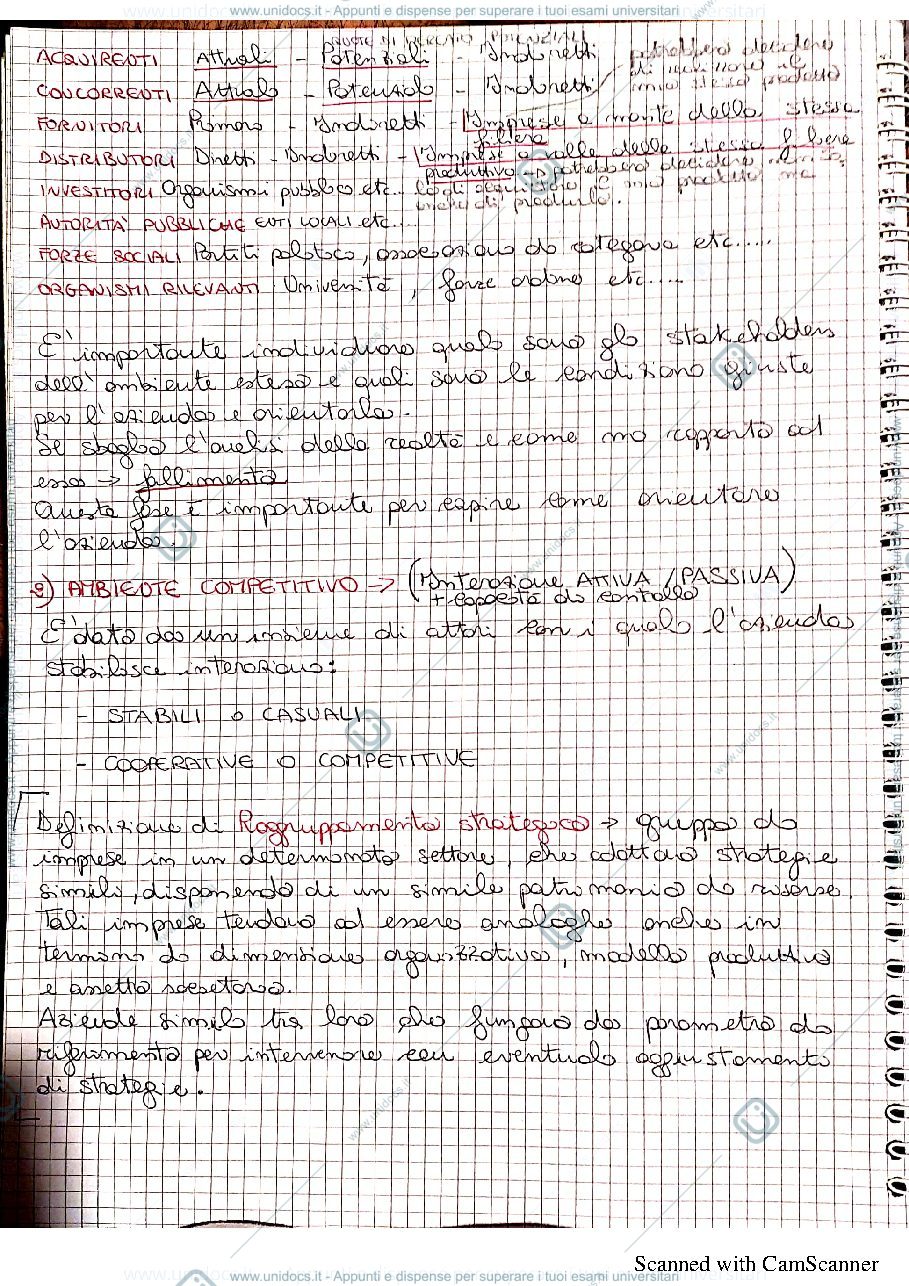 www.unidocs.it - Appunti e dispense per superare i tuoi esami universitari
QUOTE DI MERCATO POTENZIALI
ACQUIRENTI Attuali - Potenziali - Indiretti
potrebbero decidere
di
mio stesso prodotto
CONCORRENTI Attuali - Potenziali - Indiretti
FORNITORI Primari - Indiretti - Imprese a monte della stessa
filiera
DISTRIBUTORI Diretti Indiretti - Imprese a valle della stessa filiera
produttiva → potrebbero decidere
INVESTITORI Organismi pubblici etc... il mio prodotto ma
anche di produrlo.
AUTORITÀ PUBBLICHE ENTI LOCALI etc...
FORZE SOCIALI Partiti politici, associazioni di categoria etc.....
ORGANISMI RILEVANTI Università, forze ordine etc.....
E' importante individuare quali sono gli stakeholders
dell'ambiente esteso e quali sono le condizioni giuste
per l'azienda e orientarla.
Se sbaglio l'analisi della realtà e come mi rapporto ad
essa → fallimento
Questa fase è importante per capire come orientare
l'azienda.
2) AMBIENTE COMPETITIVO → (Interazione ATTIVA / PASSIVA)
+ capacità di controllo
E' dato da un insieme di attori con i quali l'azienda
stabilisce interazioni:
- STABILI o CASUALI
- COOPERATIVE O COMPETITIVE
Definizione di Raggruppamento strategico → gruppo di
imprese in un determinato settore, che adottano strategie
simili, disponendo di un simile patrimonio di risorse.
Tali imprese tendono ad essere analoghe anche in
termini di dimensione organizzativa, modello produttivo
e assetto societario.
Aziende simili tra loro che fungono da parametro di
riferimento per intervenire con eventuale aggiustamento
di strategie.
Scanned with CamScanner
www.unidocs.it - Appunti e dispense per superare i tuoi esami universitari